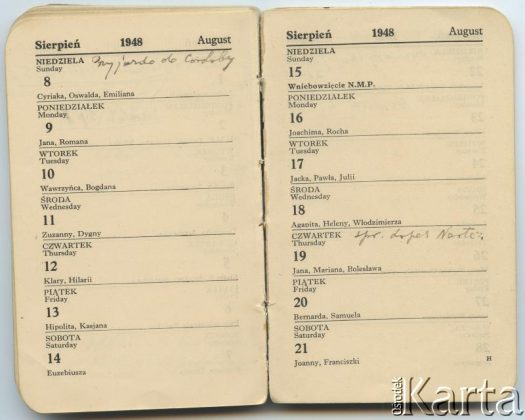 Sierpień 1948 August
NIEDZIELA wyjazd do Cordoby
Sunday
8
Cyriaka, Oswalda, Emiliana
PONIEDZIAŁEK
Monday
9
Jana, Romana
WTOREK
Tuesday
10
Wawrzyńca, Bogdana
ŚRODA
Wednesday
11
Zuzanny, Dygny
CZWARTEK
Thursday
12
Klary, Hilarii
PIĄTEK
Friday
13
Hipolita, Kasjana
SOBOTA
Saturday
14
Euzebiusza
Sierpień 1948 August
NIEDZIELA
Sunday
15
Wniebowzięcie N.M.P.
PONIEDZIAŁEK
Monday
16
Joachima, Rocha
WTOREK
Tuesday
17
Jacka, Pawła, Julii
ŚRODA
Wednesday
18
Agapita, Heleny, Włodzimierza
CZWARTEK
Thursday
19
Jana, Mariana, Bolesława
PIĄTEK
Friday
20
Bernarda, Samuela
SOBOTA
Saturday
21
Joanny, Franciszki
H
ośrodek
Karta